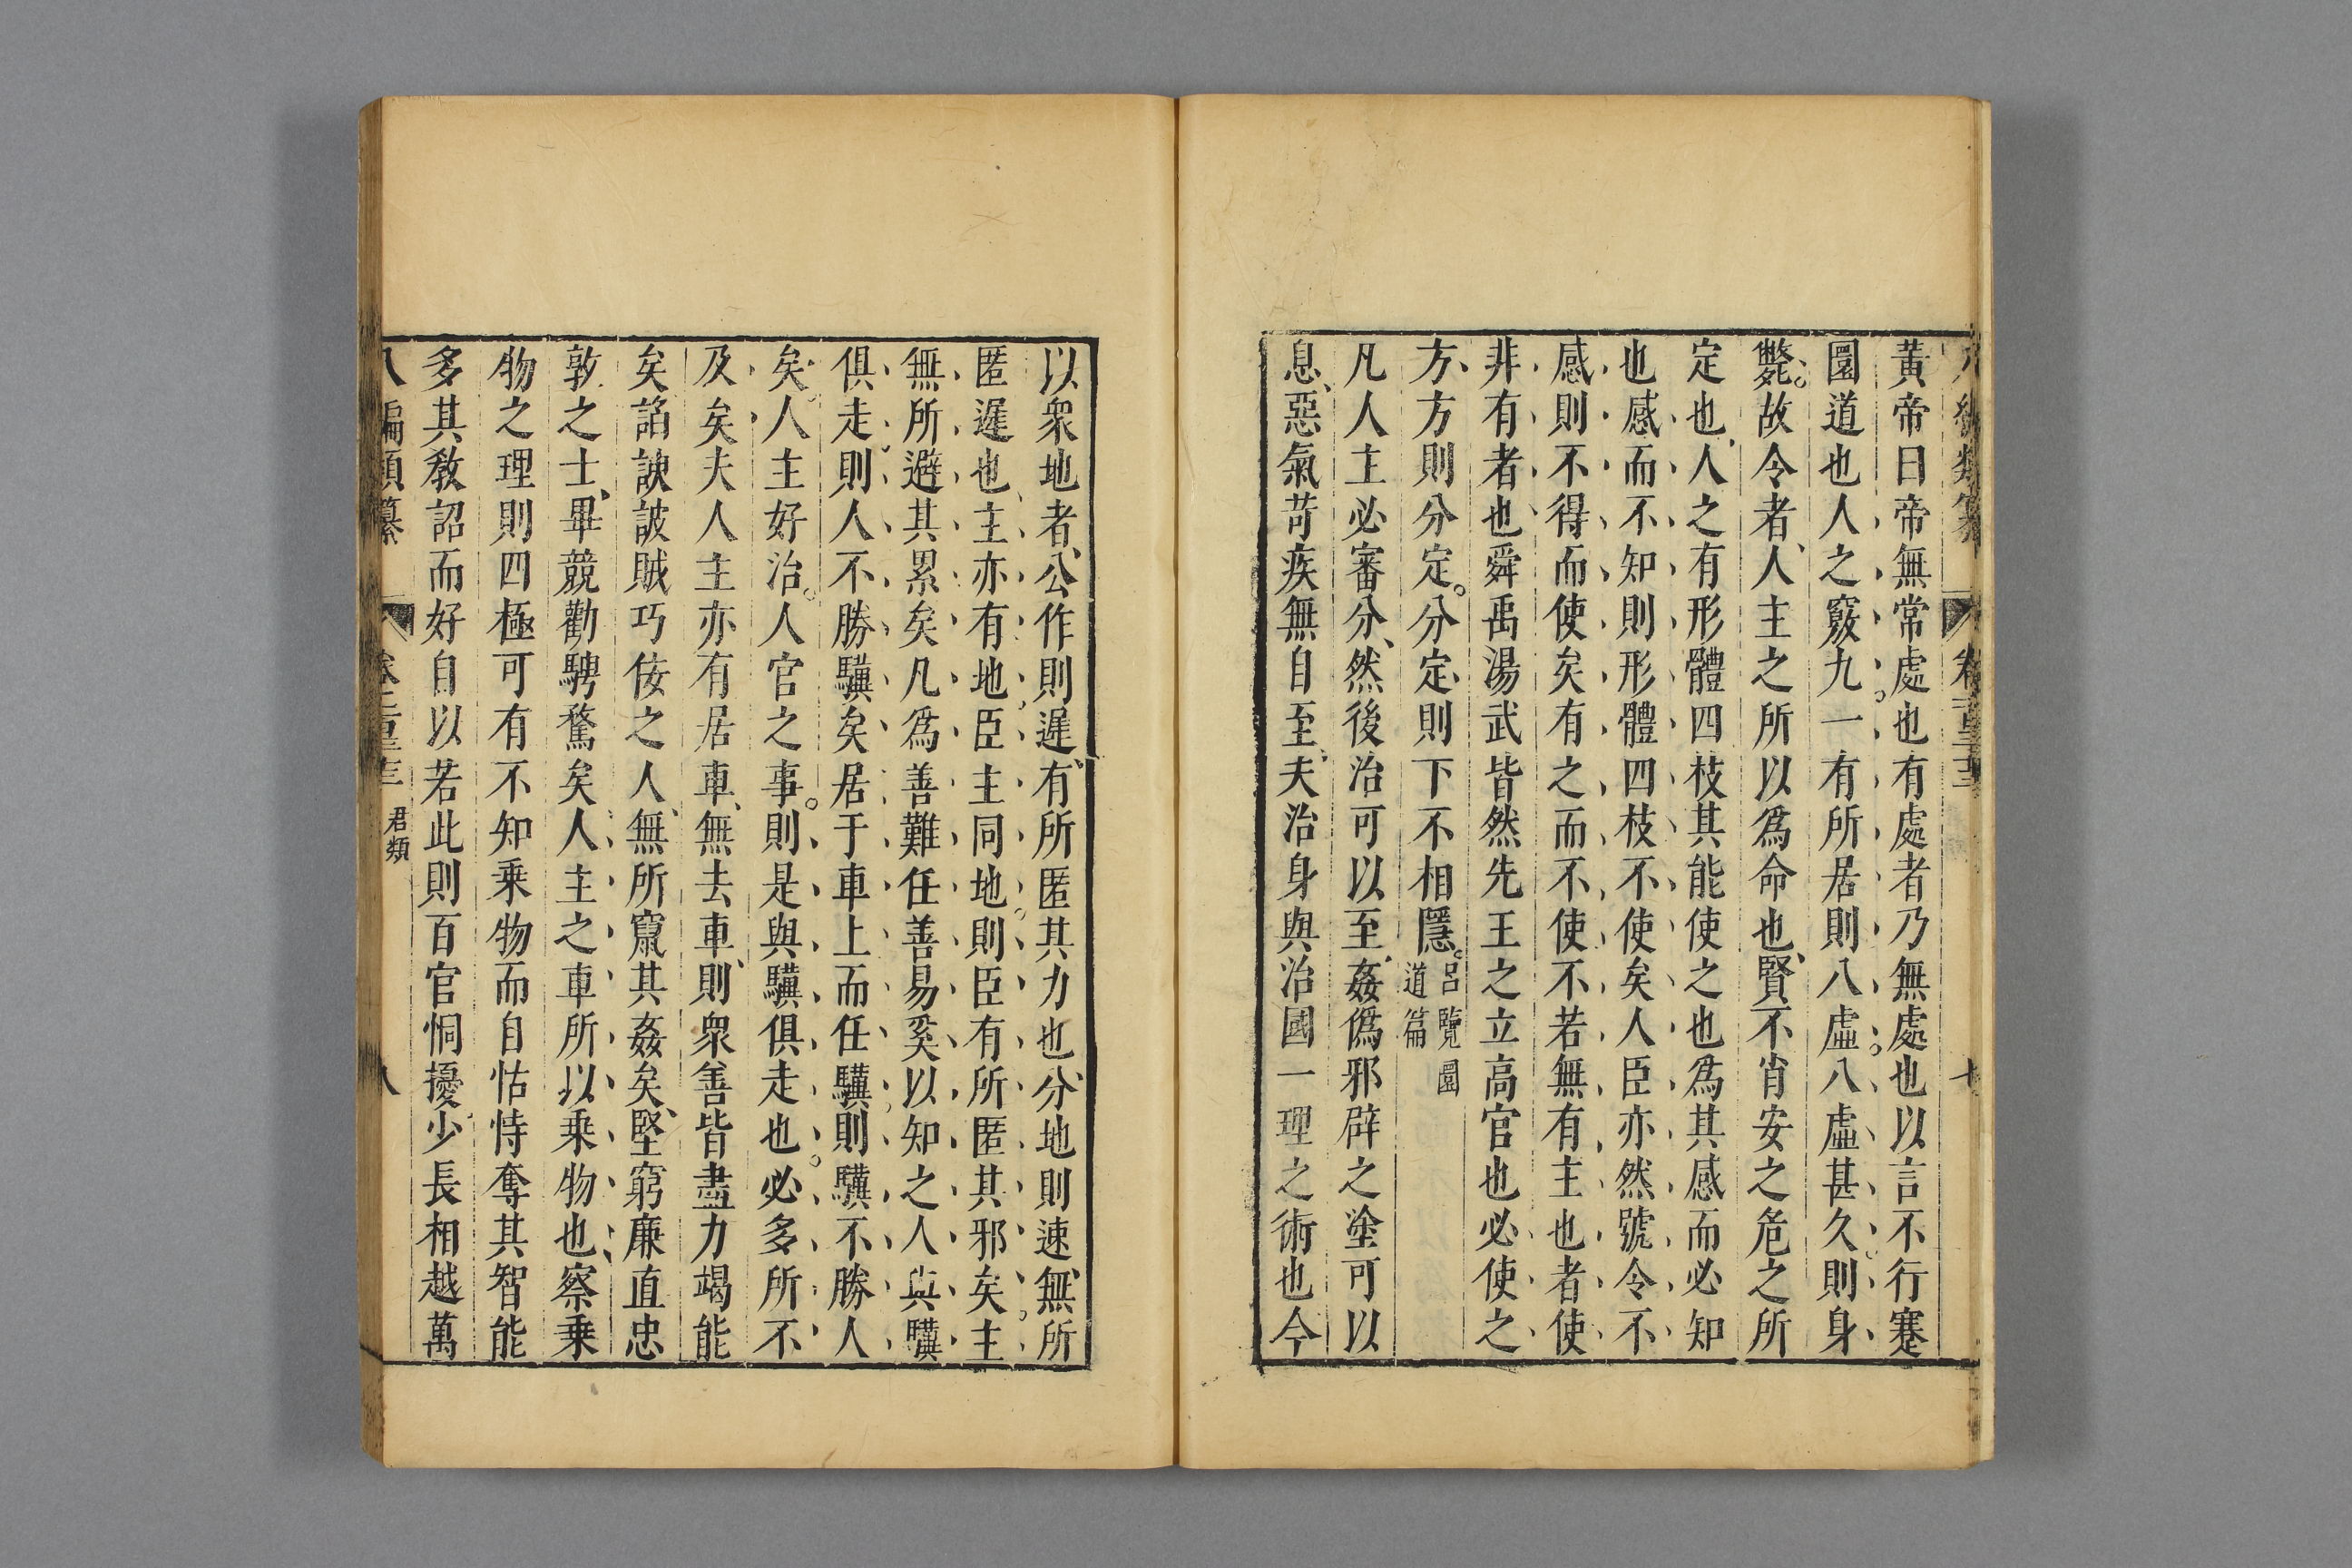 黃帝曰帝無常處也有處者乃無處也以言不行蹇
圜道也人之竅九一有所居則八虛八虛甚久則身
斃故令者人主之所以爲命也賢不肖安之危之所
定也人之有形體四枝其能使之也爲其感而必知
也感而不知則形體四枝不使矣人臣亦然號令不
感則不得而使矣有之而不使不若無有主也者使
非有者也舜禹湯武皆然先王之立高官也必使之
方方則分定分定則下不相隱
呂覽圜
道篇
凡人主必審分然後治可以至姦僞邪辟之塗可以
息惡氣苛疾無自至夫治身與治國一理之術也今
以衆地者公作則遲有所匿其力也分地則速無所
匿遲也主亦有地臣主同地則臣有所匿其邪矣主
無所避其累矣凡爲善難任善易奚以知之人與驥
俱走則人不勝驥矣居于車上而任驥則驥不勝人
矣人主好治人官之事則是與驥俱走也必多所不
及矣夫人主亦有居車無去車則衆善皆盡力竭能
矣諂諛詖賊巧佞之人無所竄其姦矣堅窮廉直忠
敦之士畢競勸騁騖矣人主之車所以乘物也察乘
物之理則四極可有不知乘物而自怙恃奪其智能
多其敎詔而好自以若此則百官恫擾少長相越萬
君類
八